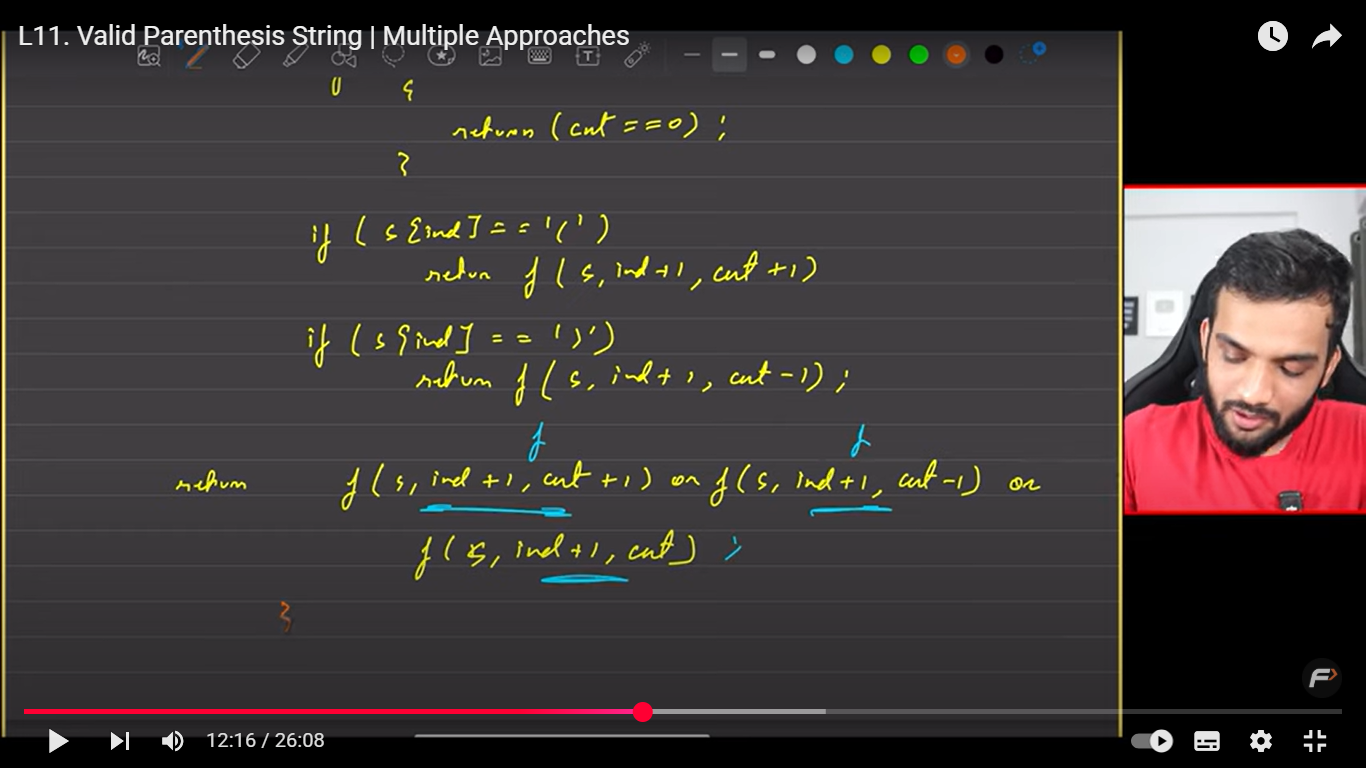 L11. Valid Parenthesis String | Multiple Approaches
{
return (cnt == 0) ;
}
if ( s[ind] == '(' )
return f ( s, ind +1, cnt +1)
if ( s[ind] == ')' )
return f ( s, ind + 1, cnt - 1) ;
f f
return f ( s, ind +1, cnt +1) or f(s, ind+1, cnt-1) or
f ( s, ind+1, cnt) ;
}
12:16 / 26:08